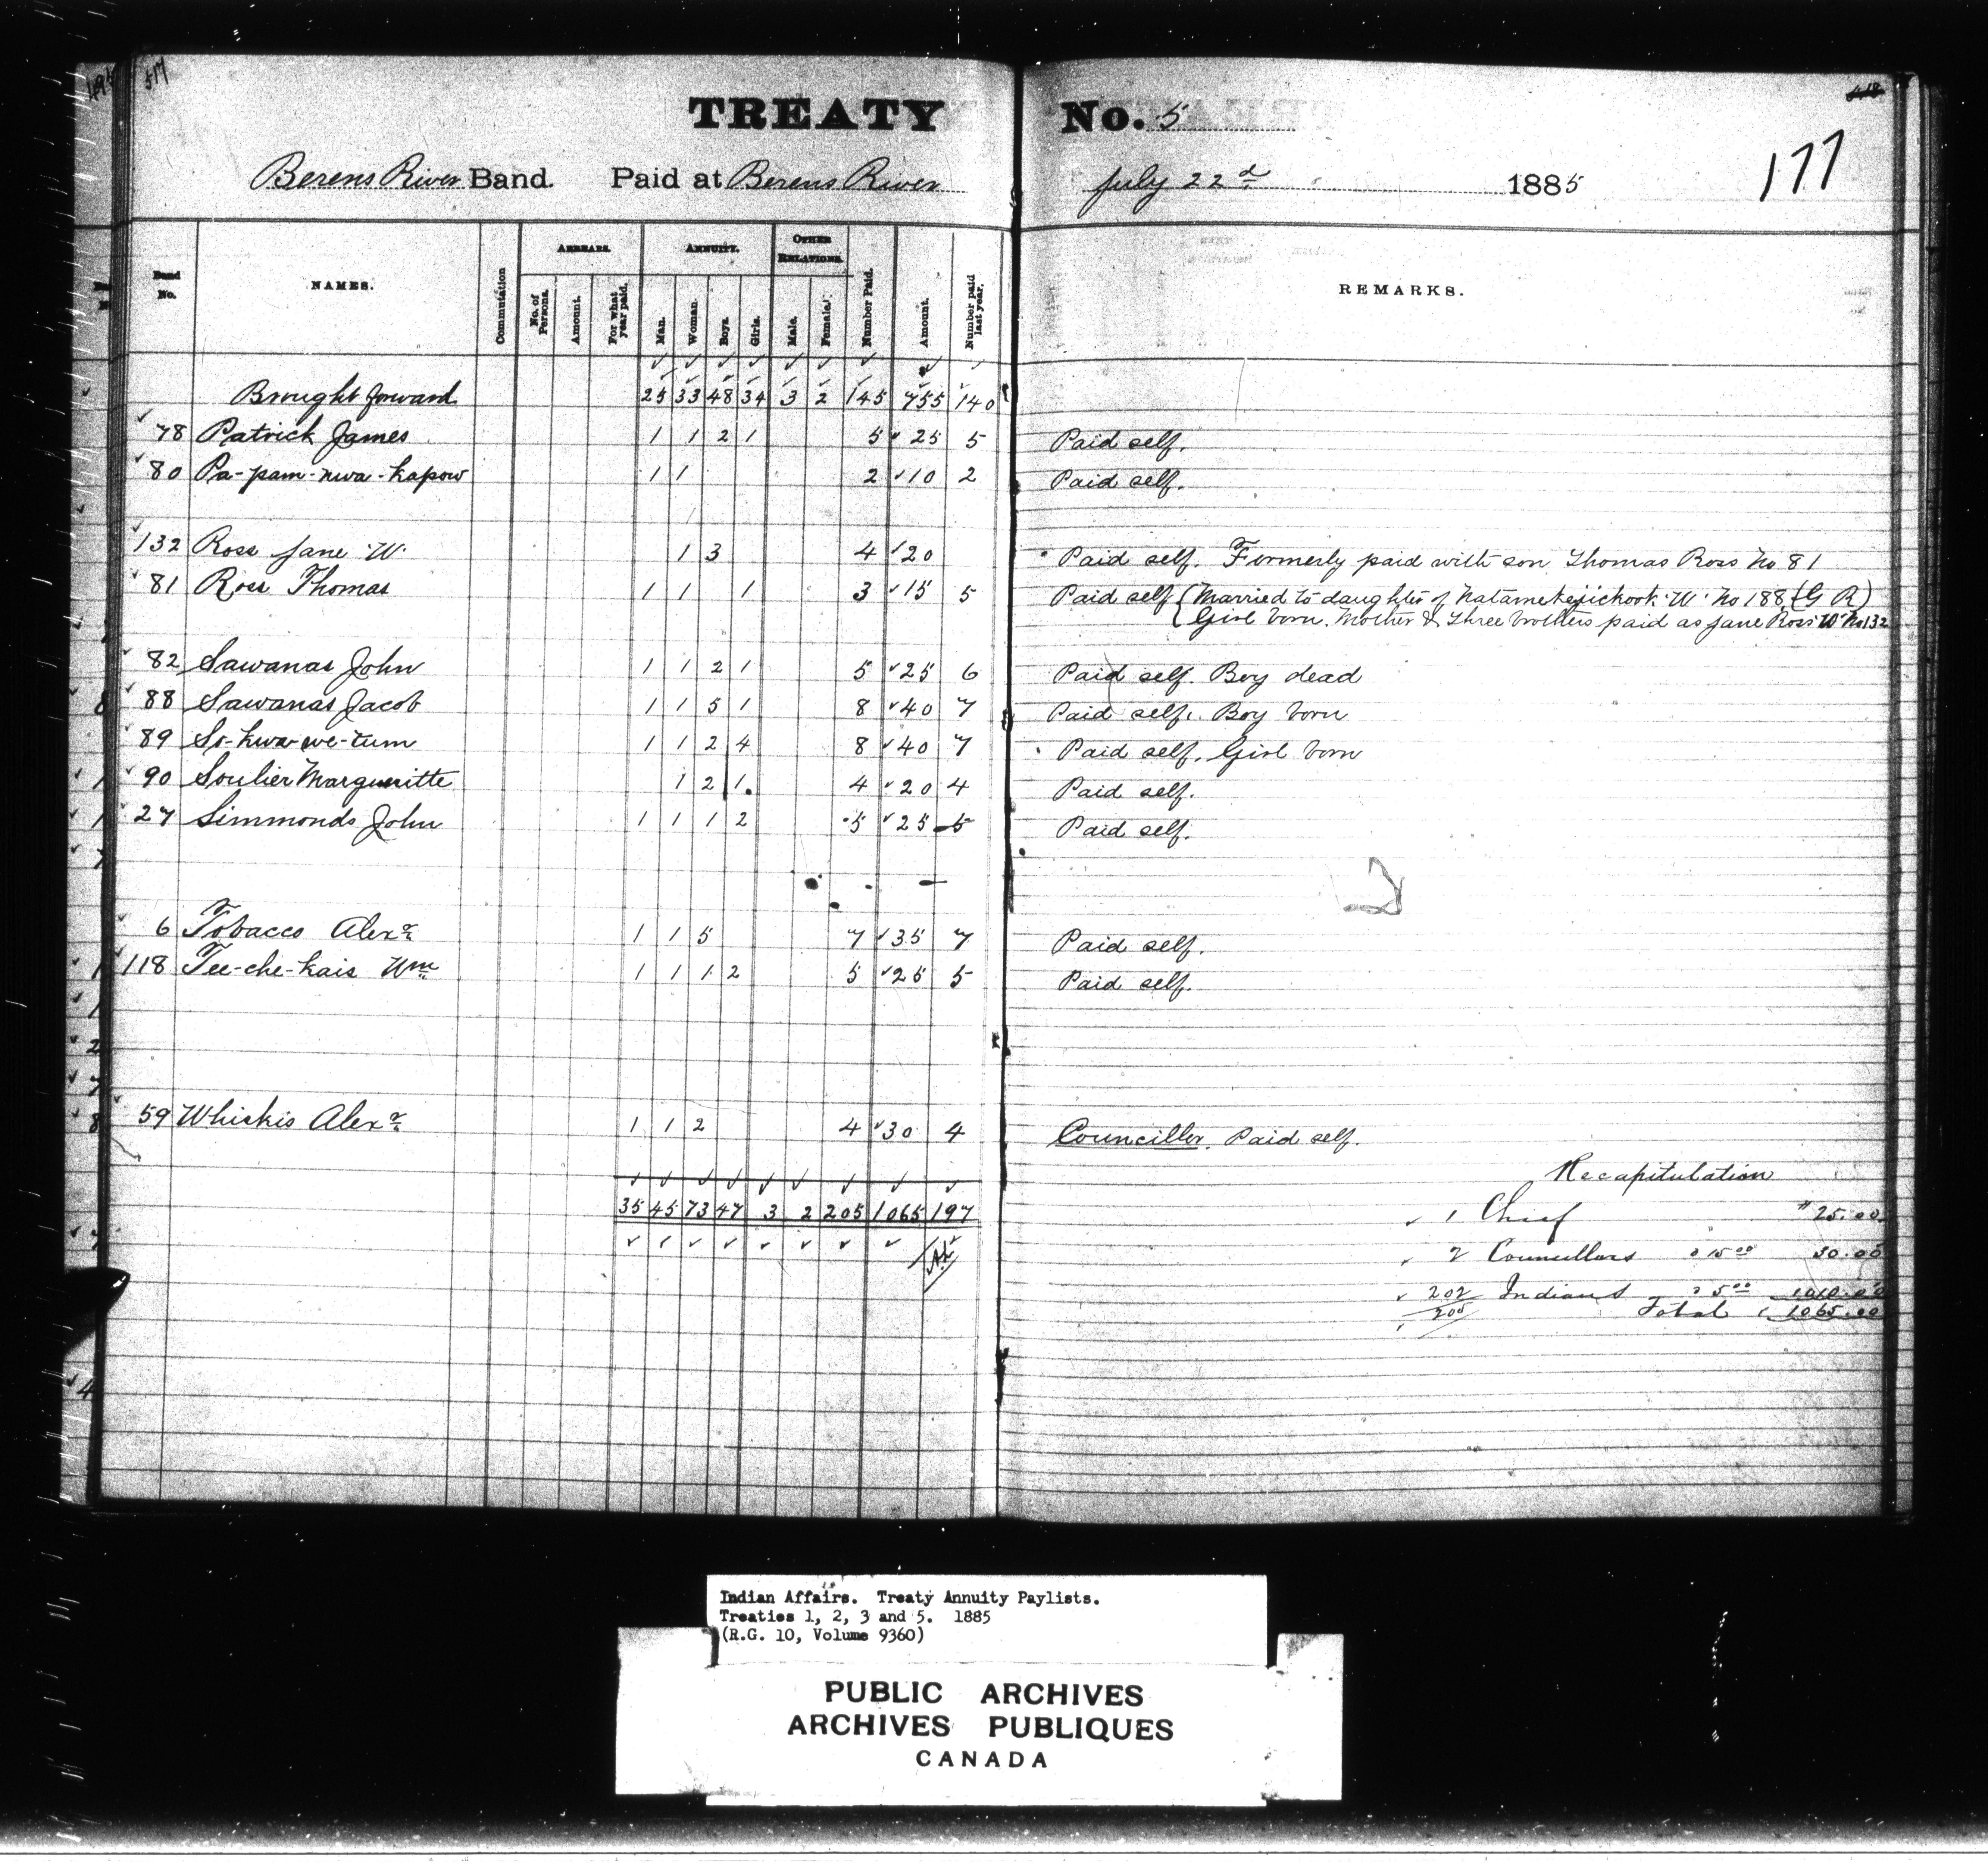 517
TREATY No. 5
177
Berens River Band. Paid at Berens River July 22d 1885
Band No. NAMES. Commutation ARREARS. No. of Persons. Amount. For what year paid. ANNUITY. Man. Woman. Boys. Girls. OTHER RELATIONS. Male. Female. Number Paid. Amount. Number paid last year. REMARKS.
Brought forward 25 33 48 34 3 2 145 755 140
78 Patrick James 1 1 2 1 5 25 5 Paid self.
80 Pa-pam-nwa-kapow 1 1 2 10 2 Paid self.
132 Ross Jane "W" 1 3 4 20 Paid self. Formerly paid with son Thomas Ross No 81
81 Ross Thomas 1 1 1 3 15 5 Paid self (Married to daughter of Natamekejickook "W" No 188 (G R)
Girl born. Mother & three brothers paid as Jane Ross "W" No 132
82 Sawanas John 1 1 2 1 5 25 6 Paid self. Boy dead
88 Sawanas Jacob 1 1 5 1 8 40 7 Paid self. Boy born
89 So-kwa-we-tum 1 1 2 4 8 40 7 Paid self. Girl born
90 Soulier Margueritte 1 2 1 4 20 4 Paid self.
27 Simmonds John 1 1 1 2 5 25 5 Paid self.
6 Tobacco Alexr 1 1 5 7 35 7 Paid self.
118 Tee-che-kais Wm 1 1 1 2 5 25 5 Paid self.
59 Whiskis Alexr 1 1 2 4 30 4 Councillor. Paid self.
35 45 73 47 3 2 205 1065 197
Recapitulation
1 Chief $25.00
2 Councillors @ 15 00 30.00
202 Indians @ 5 00 1010.00
205 Total 1065.00
Indian Affairs. Treaty Annuity Paylists.
Treaties 1, 2, 3 and 5. 1885
(R.G. 10, Volume 9360)
PUBLIC ARCHIVES
ARCHIVES PUBLIQUES
CANADA